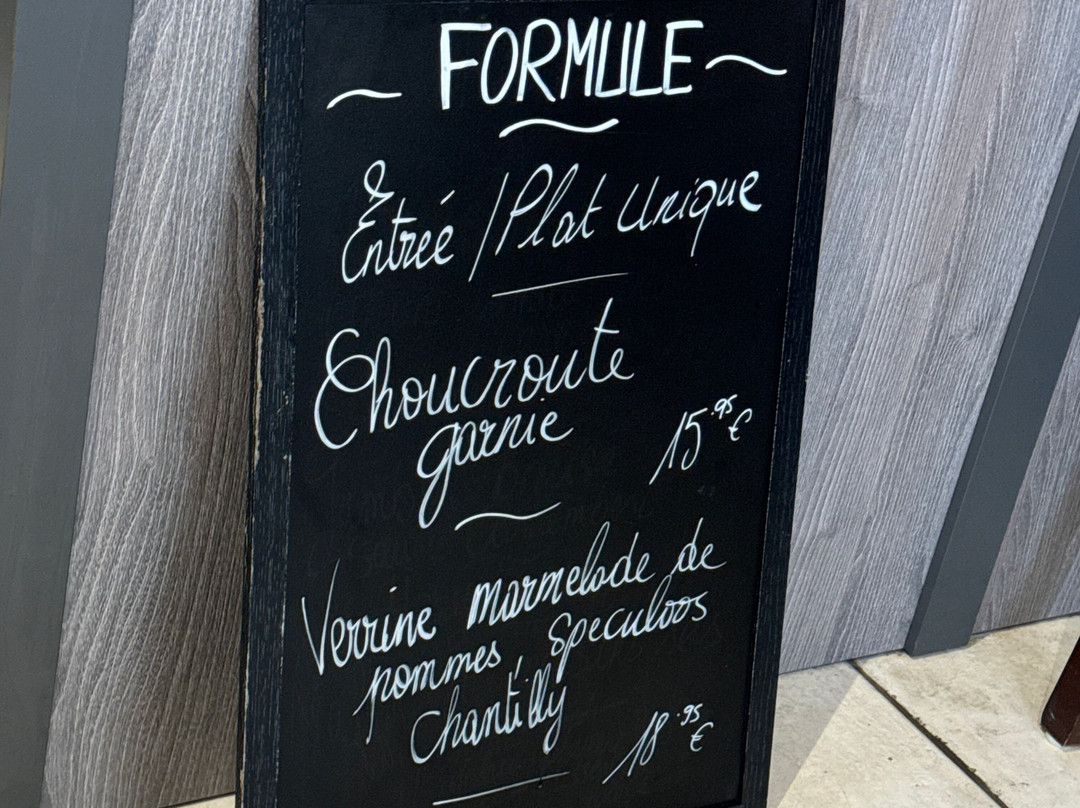 FORMULE
Entrée / Plat Unique
Choucroute
garnie
15.95 €
Verrine marmelade de
pommes, Speculoos
chantilly
18.95 €